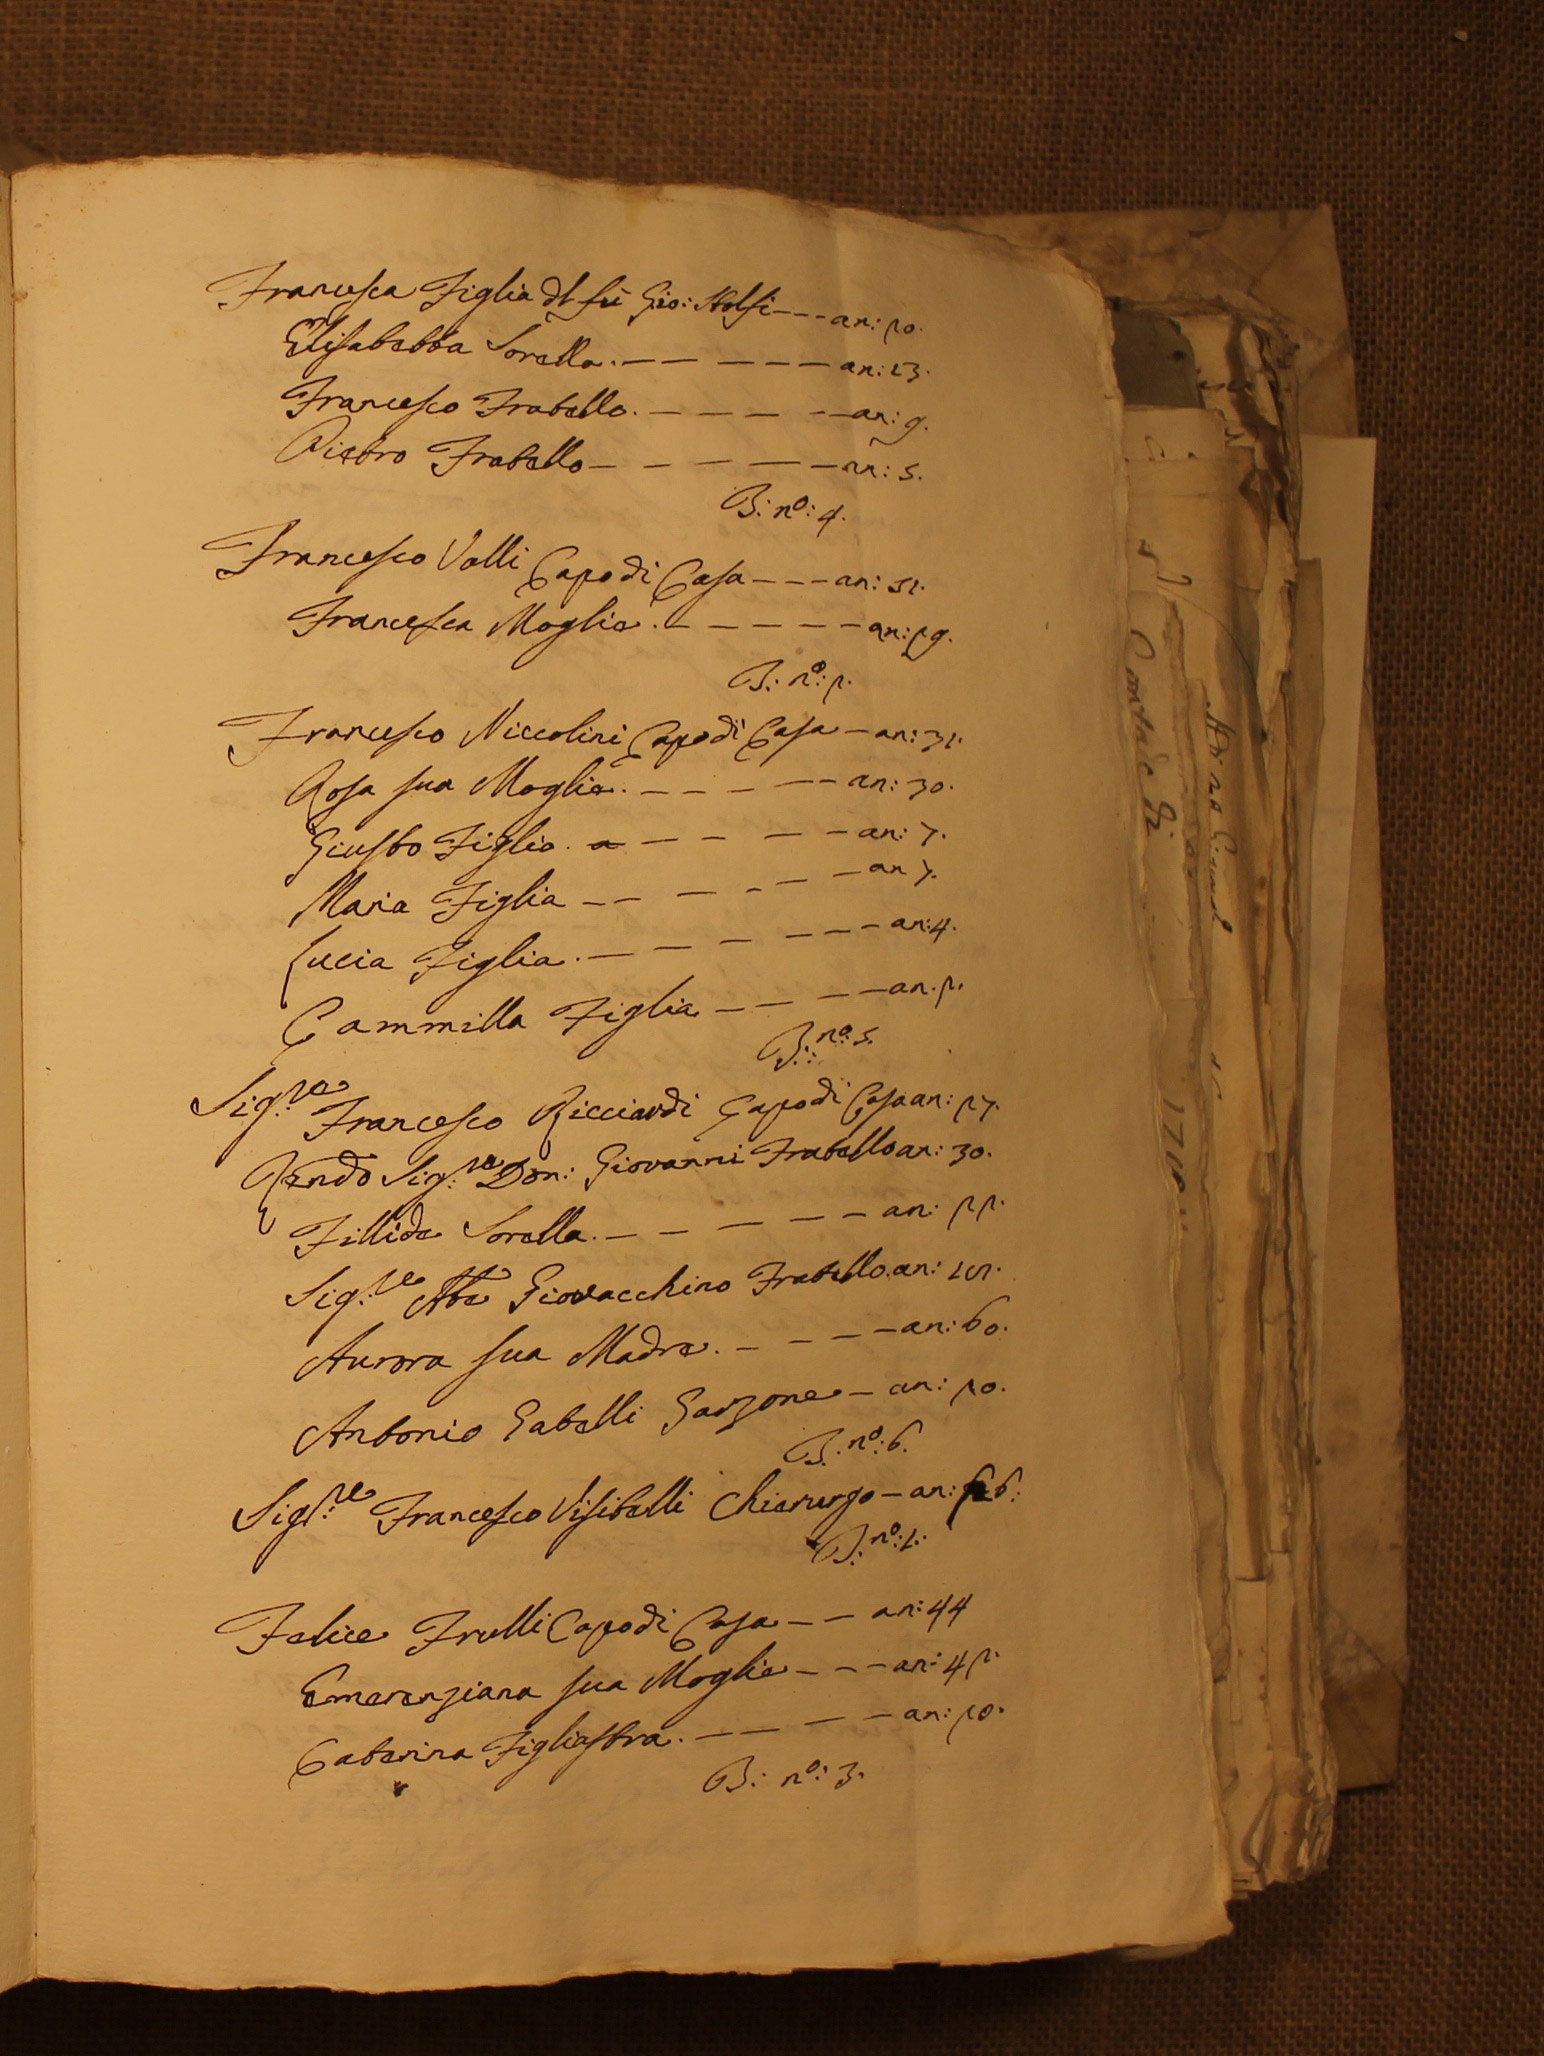 Francesca Figlia dl fù Gio: Stolfi --- an: 20.
Elisabetta Sorella. — — — — — an: 13.
Francesco Fratello. — — — — an: 9.
Pietro Fratello — — — — — an: 5.
B: nº: 4.
Francesco Valli Capo di Casa --- an: 31.
Francesca Moglie. — — — — — an: 29.
B: nº: 2.
Francesco Niccolini Capo di Casa — an: 31.
Rosa sua Moglie. — — — — — an: 30.
Giusto Figlio. — — — — — an: 7.
Maria Figlia — — — - — — an 7.
Lucia Figlia. — — — — — — an: 4.
Cammilla Figlia — — — — an. 2.
B: nº: 5.
Sig.re Francesco Ricciardi Capo di Casa an: 27.
Rendo Sig:re Don: Giovanni Fratello an: 30.
Fillide Sorella. — — — — — an: 22.
Sig:re Abe Giovacchino Fratello. an:
Aurora sua Madre. — — — — an: 60.
Antonio Gabelli Garzone — an: 20.
B: nº: 6.
Sigl:re Francesco Visibelli Chierurgo — an: 26:
B: nº: 1:
Felice Frulli Capo di Casa — — an: 44
Emerenziana sua Moglie — — — an: 42.
Caterina Figliastra. — — — — an: 20.
B: nº: 3.
1710